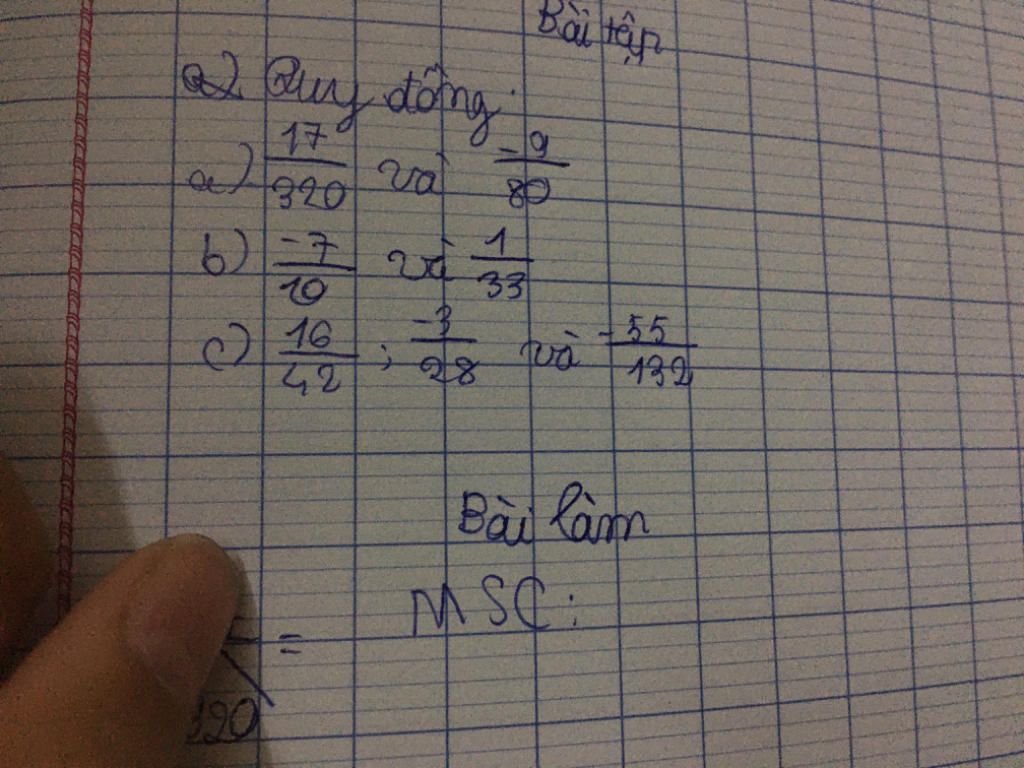 Bài tập
2) Quy đồng.
a) 17/320 và -9/80
b) -7/10 và 1/33
c) 16/42 ; -3/28 và -55/132
Bài làm
MSC :
=